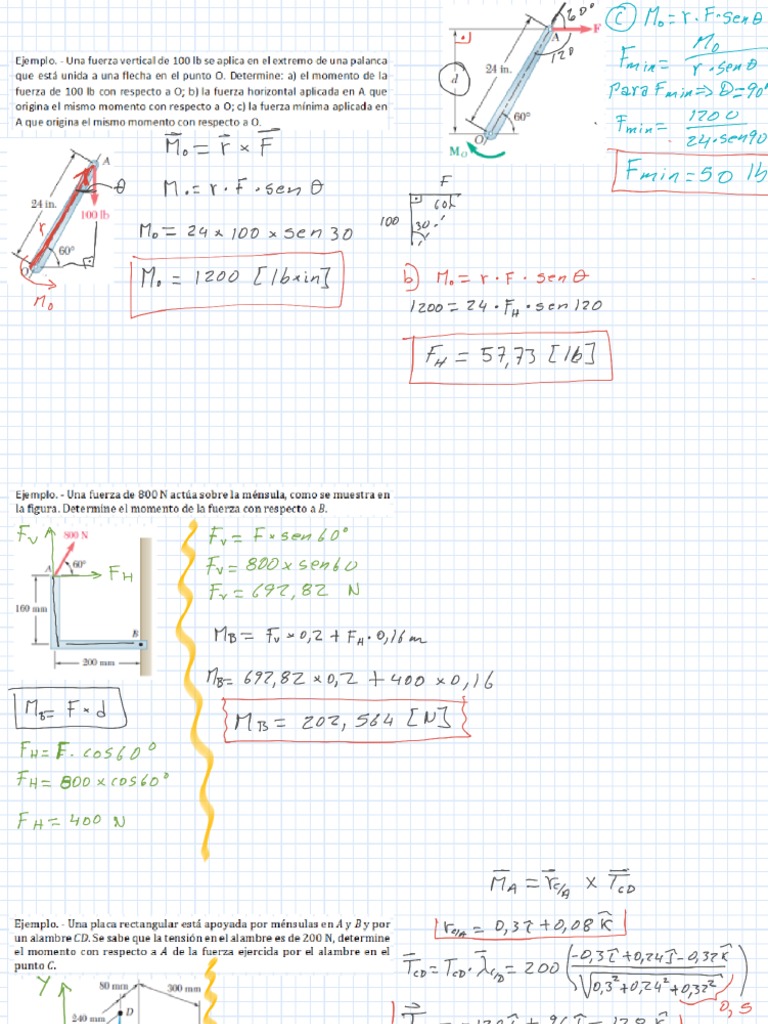 Ejemplo. - Una fuerza vertical de 100 lb se aplica en el extremo de una palanca
que está unida a una flecha en el punto O. Determine: a) el momento de la
fuerza de 100 lb con respecto a O; b) la fuerza horizontal aplicada en A que
origina el mismo momento con respecto a O; c) la fuerza mínima aplicada en
A que origina el mismo momento con respecto a O.
A
24 in.
r
100 lb
θ
60°
O
M₀
M⃗₀ = r⃗ × F⃗
M₀ = r · F · sen θ
M₀ = 24 × 100 × sen 30
M₀ = 1200 [lb×in]
60°
A
F
120
24 in.
d
60°
O
M₀
F
60
100
30
b) M₀ = r · F · sen θ
1200 = 24 · F_H · sen 120
F_H = 57,73 [lb]
C) M₀ = r · F · sen θ
Fmin = M₀ / r · sen θ
Para Fmin => D = 90°
Fmin = 1200 / 24 · sen 90
Fmin = 50 lb
Ejemplo. - Una fuerza de 800 N actúa sobre la ménsula, como se muestra en
la figura. Determine el momento de la fuerza con respecto a B.
F_V
800 N
A
60°
F_H
160 mm
B
200 mm
M_B = F × d
F_H = F · cos 60°
F_H = 800 × cos 60°
F_H = 400 N
F_V = F × sen 60°
F_V = 800 × sen 60
F_V = 692,82 N
M_B = F_V × 0,2 + F_H · 0,16 m
M_B = 692,82 × 0,2 + 400 × 0,16
M_B = 202,564 [N]
Ejemplo. - Una placa rectangular está apoyada por ménsulas en A y B y por
un alambre CD. Se sabe que la tensión en el alambre es de 200 N, determine
el momento con respecto a A de la fuerza ejercida por el alambre en el
punto C.
Y
80 mm
300 mm
240 mm
D
M⃗_A = r⃗_C/A × T⃗_CD
r_C/A = 0,3 i + 0,08 k̂
T⃗_CD = T_CD · λ⃗_C/D = 200 (-0,3 i + 0,24 j - 0,32 k̂ / √0,3² + 0,24² + 0,32²)
0,5